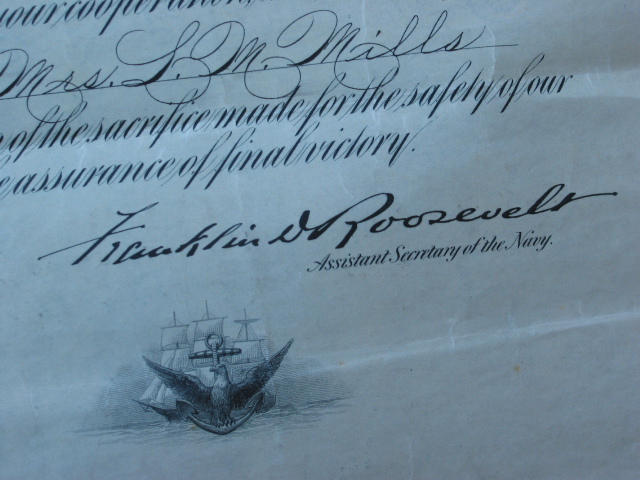 your cooperation,
Mrs. L. M. Mills
of the sacrifice made for the safety of our
assurance of final victory.
Franklin D Roosevelt
Assistant Secretary of the Navy.